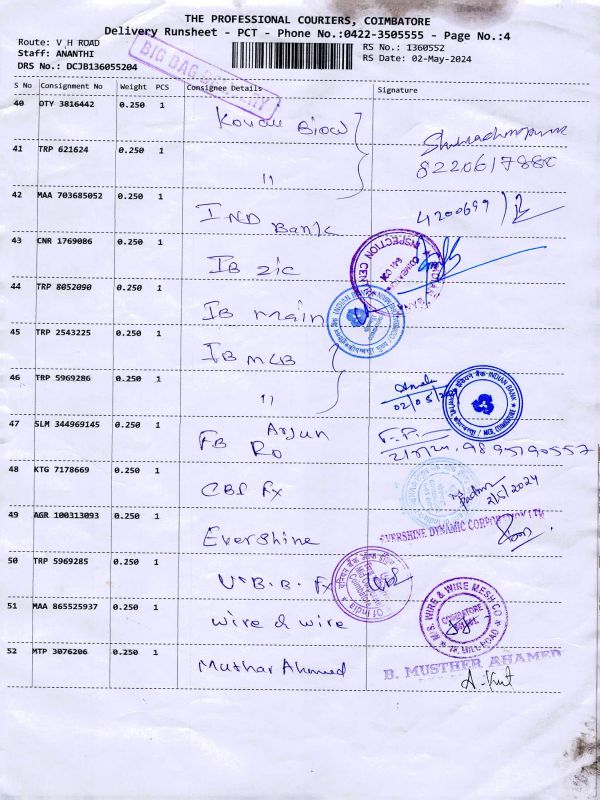 THE PROFESSIONAL COURIERS, COIMBATORE
Delivery Runsheet - PCT - Phone No.:0422-3505555 - Page No.:4
Route: V H ROAD
Staff: ANANTHI
DRS No.: DCJB136055204
RS No.: 1360552
RS Date: 02-May-2024
BIG BAG
S No Consignment No Weight PCS Consignee Details Signature
40 DTY 3816442 0.250 1
41 TRP 621624 0.250 1 11 8220617880
42 MAA 703685052 0.250 1 IND Bank 4200699
43 CNR 1769086 0.250 1 IB zic
INSPECTION CENTRE
44 TRP 8052090 0.250 1 IB main
INDIAN BANK
45 TRP 2543225 0.250 1 IB MCB
46 TRP 5969286 0.250 1 11
इंडियन बैंक-INDIAN BANK
47 SLM 344969145 0.250 1 FB Arjun Ro
48 KTG 7178669 0.250 1 CBS Fx 2/5/2024
49 AGR 100313093 0.250 1 Evershine
EVERSHINE DYNAMIC
50 TRP 5969285 0.250 1 Fx
Of India
51 MAA 865525937 0.250 1 wire & wire
M/S. WIRE & WIRE MESH CO
COIMBATORE
MILL ROAD
52 MTP 3076206 0.250 1 Muthar Ahamed
B. MUSTHER AHAMED